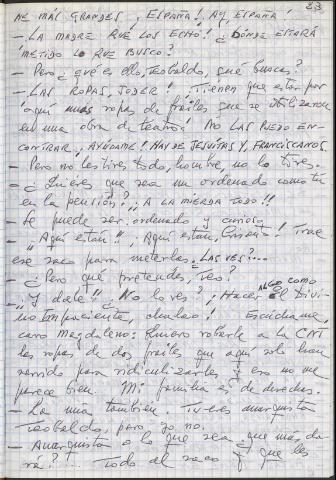 83
DE MÁS GRANDES, ¡ESPAÑA! ¡AY ESPAÑA!
- ¡LA MADRE QUE LOS ECHÓ! ¿DÓNDE ESTARÁ
METIDO LO QUE BUSCO?
- Pero ¿qué es ello, Teobaldo, qué buscas?
- LAS ROPAS, JODER! Tienen que estar por
aquí unas ropas de frailes que se utilizaron
en una obra de teatro! NO LAS PUEDO EN-
CONTRAR, AYÚDAME! HAY DE JESUITAS Y FRANCISCANOS.
- Pero no les tires todo, hombre, no lo tires.
- ¿Quieres que sea un ordenado como tú
en la pensión?, ¡A LA MIERDA TODO!!
- Se puede ser ordenado y curioso.
- ¡Aquí están!! ¡Aquí están, ! Trae
ese saco para meterlas. ¿LAS VES?...
- ¿Pero qué pretendes, Teo?
- ¡Y dale!! ¿No lo ves? ¡Hacer ALGO COMO el Divi-
no Impaciente, chulao! Escúchame,
caro Magdaleno: Quiero robarle a la CNT
las ropas de dos frailes que aquí solo han
servido para ridiculizarles y eso no me
parece bien. Mi familia es de derechas.
- La mía también. Tú eres anarquista
Teobaldo, pero yo no.
- Anarquista o lo que sea ¿qué más da-
rá?... Todo al saco y que les